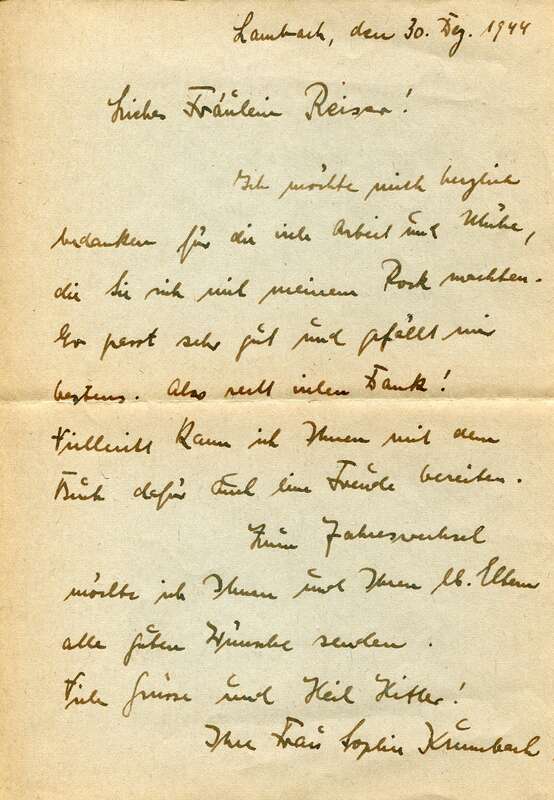 Lambach, den 30. Dez. 1944
Liebes Fräulein Reiser!
Ich möchte mich herzlich
bedanken für die viele Arbeit und Mühe,
die Sie sich mit meinem Rock machten.
Er passt sehr gut und gefällt mir
bestens. Also recht vielen Dank!
Vielleicht kann ich Ihnen mit dem
Buch dafür auch eine Freude bereiten.
Zum Jahreswechsel
möchte ich Ihnen und Ihren lb. Eltern
alle guten Wünsche senden.
Viele Grüsse und Heil Hitler!
Ihre Frau Sophie Krumbach